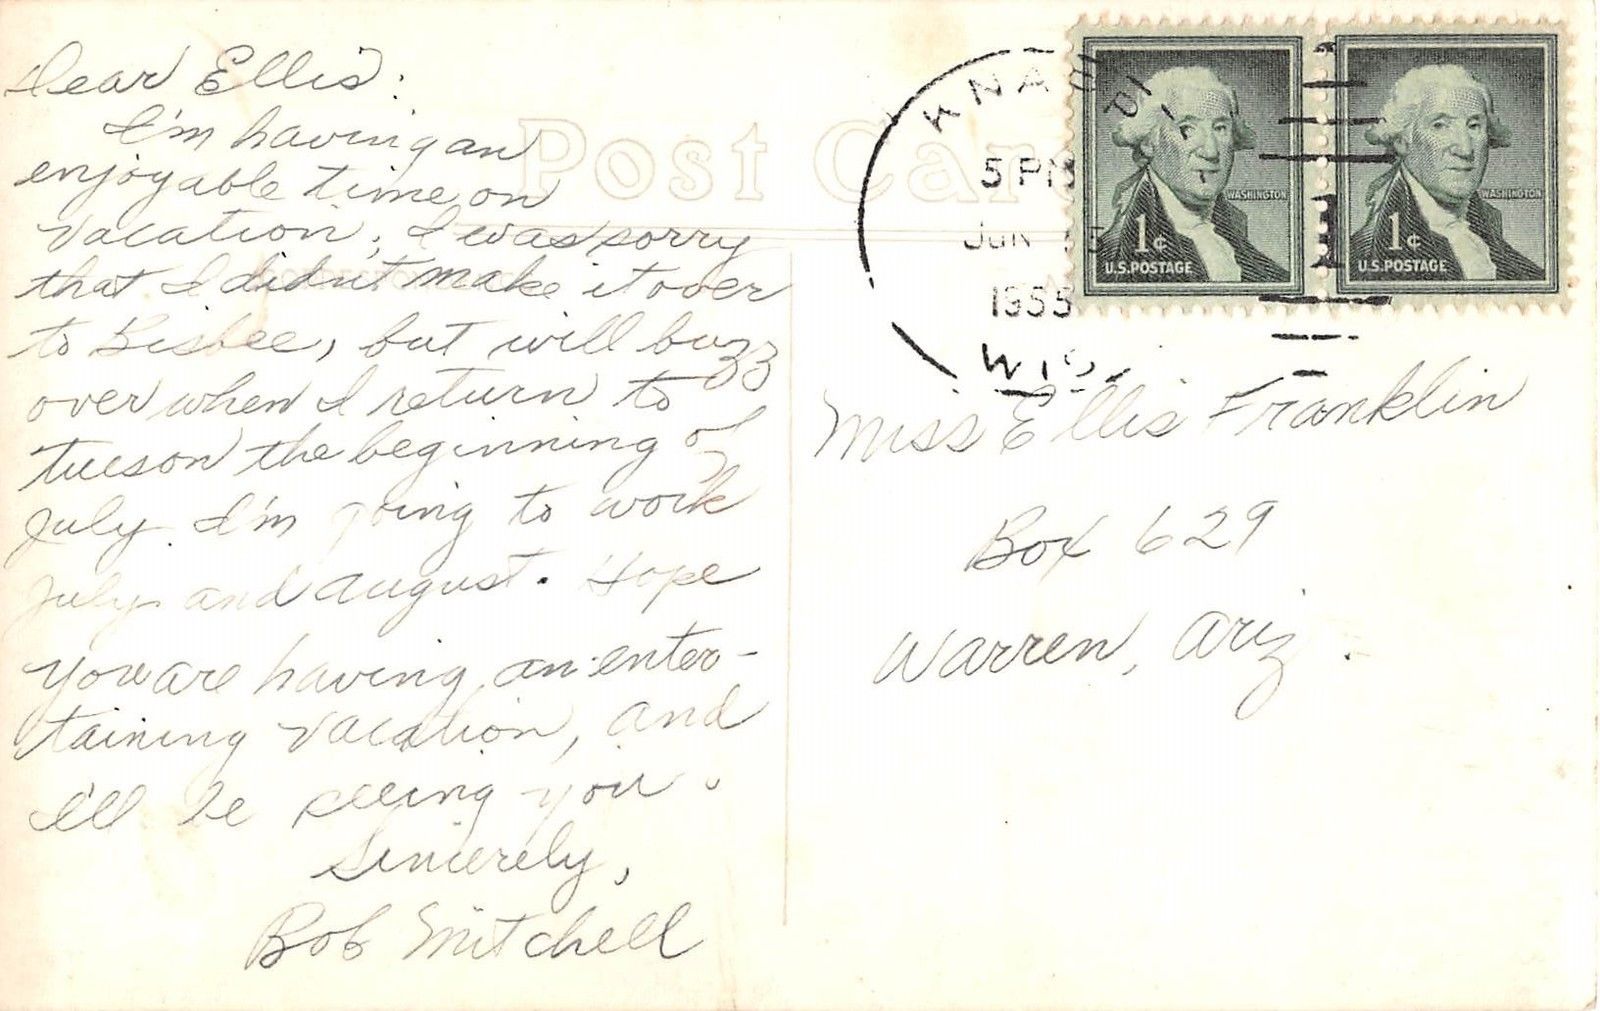 Dear Ellis:
I'm having an
enjoyable time on
vacation. I was sorry
that I didn't make it over
to Bisbee, but will buzz
over when I return to
tucson the beginning of
July. I'm going to work
July and august. Hope
you are having an enter-
taining vacation, and
I'll be seeing you.
Sincerely,
Bob Mitchell
Post Card
5 PM
JUN 15
1955
WIS.
WASHINGTON
1¢
U.S. POSTAGE
WASHINGTON
1¢
U.S. POSTAGE
Miss Ellis Franklin
Box 629
Warren, Ariz.